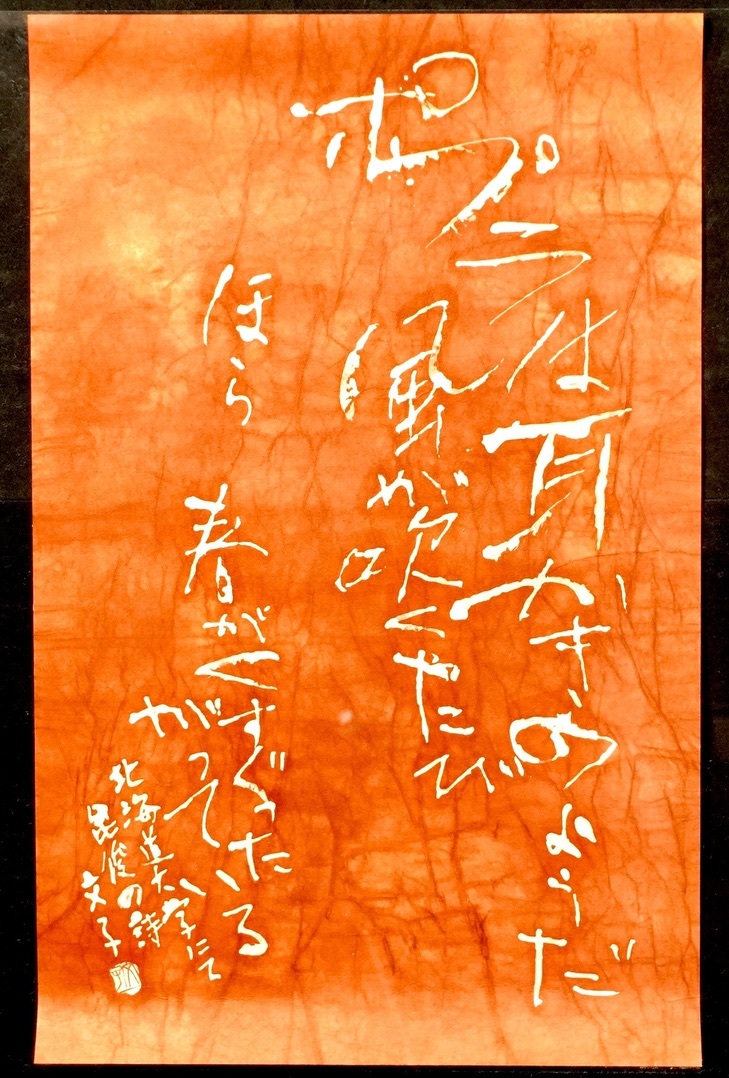 ポプラは耳かきのようだ
風が吹くたび
ほら 春がくすぐった
がっている
北海道大学にて
昆俊の詩
文子